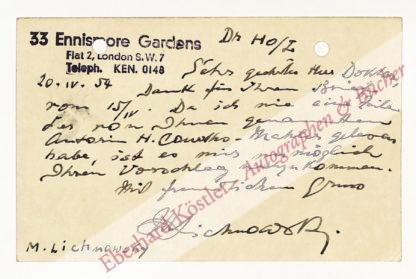 33 Ennismore Gardens
Flat 2, London S.W. 7
Teleph. KEN. 0148
Dr Ho/I
20.IV.54
Sehr geehrter Herr Doktor
Dank für Ihren
vom 15/IV. Da ich nie eine Zeile
der von Ihnen
Autorin H. gelesen
habe, ist es mir möglich
Ihren Vorschlag
Mit freundlichem Gruss
Lichnowsky.
M. Lichnawsky
Eberhard Köstler Autographen & Bücher